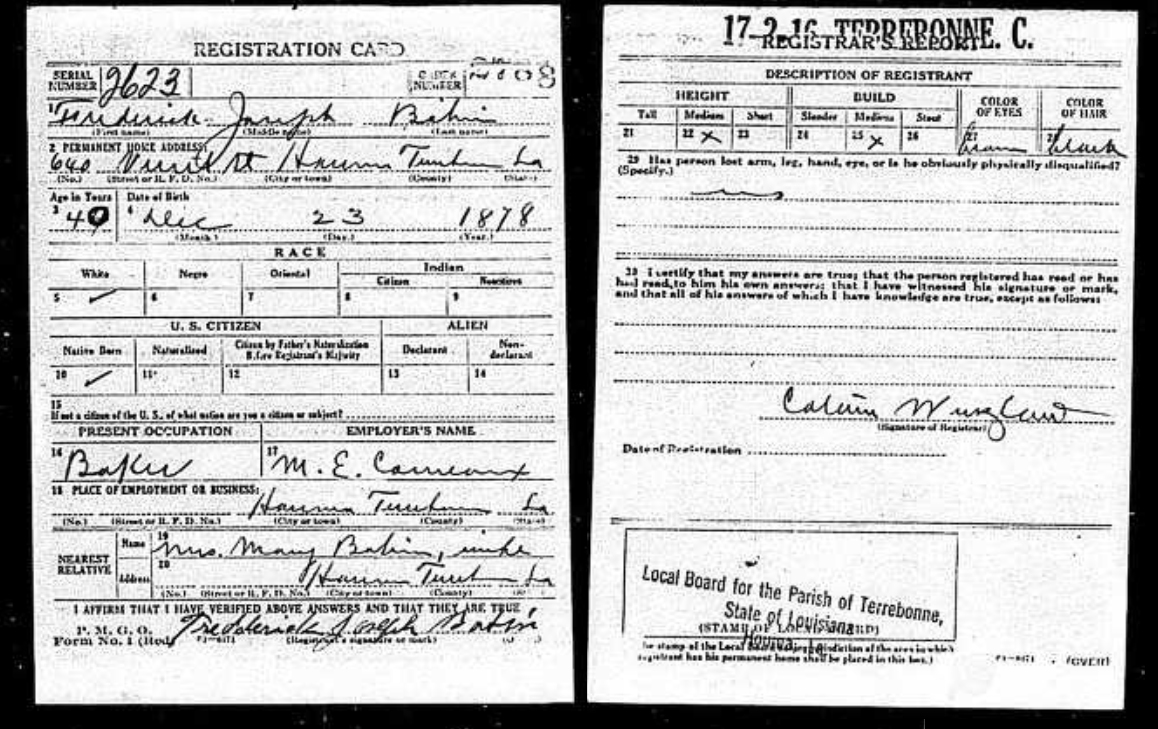 REGISTRATION CARD
SERIAL NUMBER 2623
ORDER NUMBER
1 Frederick Joseph Babin
(First name) (Middle name) (Last name)
2 PERMANENT HOME ADDRESS:
640 St Houma Terrebonne La
(No.) (Street or R. F. D. No.) (City or town) (County) (State)
Age in Years Date of Birth
3 40 4 Dec 23 1878
(Month.) (Day.) (Year.)
RACE
White Negro Oriental Indian
Citizen Noncitizen
5 ✓ 6 7 8 9
U. S. CITIZEN ALIEN
Native Born Naturalized Citizen by Father's Naturalization Before Registrant's Majority Declarant Non-declarant
10 ✓ 11 12 13 14
15
If not a citizen of the U. S., of what nation are you a citizen or subject?
PRESENT OCCUPATION EMPLOYER'S NAME
16 Baker 17 M. E. Comeaux
18 PLACE OF EMPLOYMENT OR BUSINESS:
Houma Terrebonne La
(No.) (Street or R. F. D. No.) (City or town) (County) (State)
NEAREST RELATIVE
Name 19 Mrs. Mary Babin, wife
Address 20 Houma Terrebonne La
(No.) (Street or R. F. D. No.) (City or town) (County) (State)
I AFFIRM THAT I HAVE VERIFIED ABOVE ANSWERS AND THAT THEY ARE TRUE
P. M. G. O.
Form No. 1 (Red) Frederick Joseph Babin
(Registrant's signature or mark)
17-2-16 TERREBONNE. C.
REGISTRAR'S REPORT
DESCRIPTION OF REGISTRANT
HEIGHT BUILD COLOR OF EYES COLOR OF HAIR
Tall Medium Short Slender Medium Stout
21 22 x 23 24 25 x 26 27 brown 28 black
29 Has person lost arm, leg, hand, eye, or is he obviously physically disqualified?
(Specify.)
no
30 I certify that my answers are true; that the person registered has read or has
had read to him his own answers; that I have witnessed his signature or mark,
and that all of his answers of which I have knowledge are true, except as follows:
(Signature of Registrar)
Date of Registration
Local Board for the Parish of Terrebonne,
State of Louisiana
Houma, La
(STAMP OF LOCAL BOARD)
The stamp of the Local Board having jurisdiction of the area in which
registrant has his permanent home shall be placed in this box.)
(OVER)